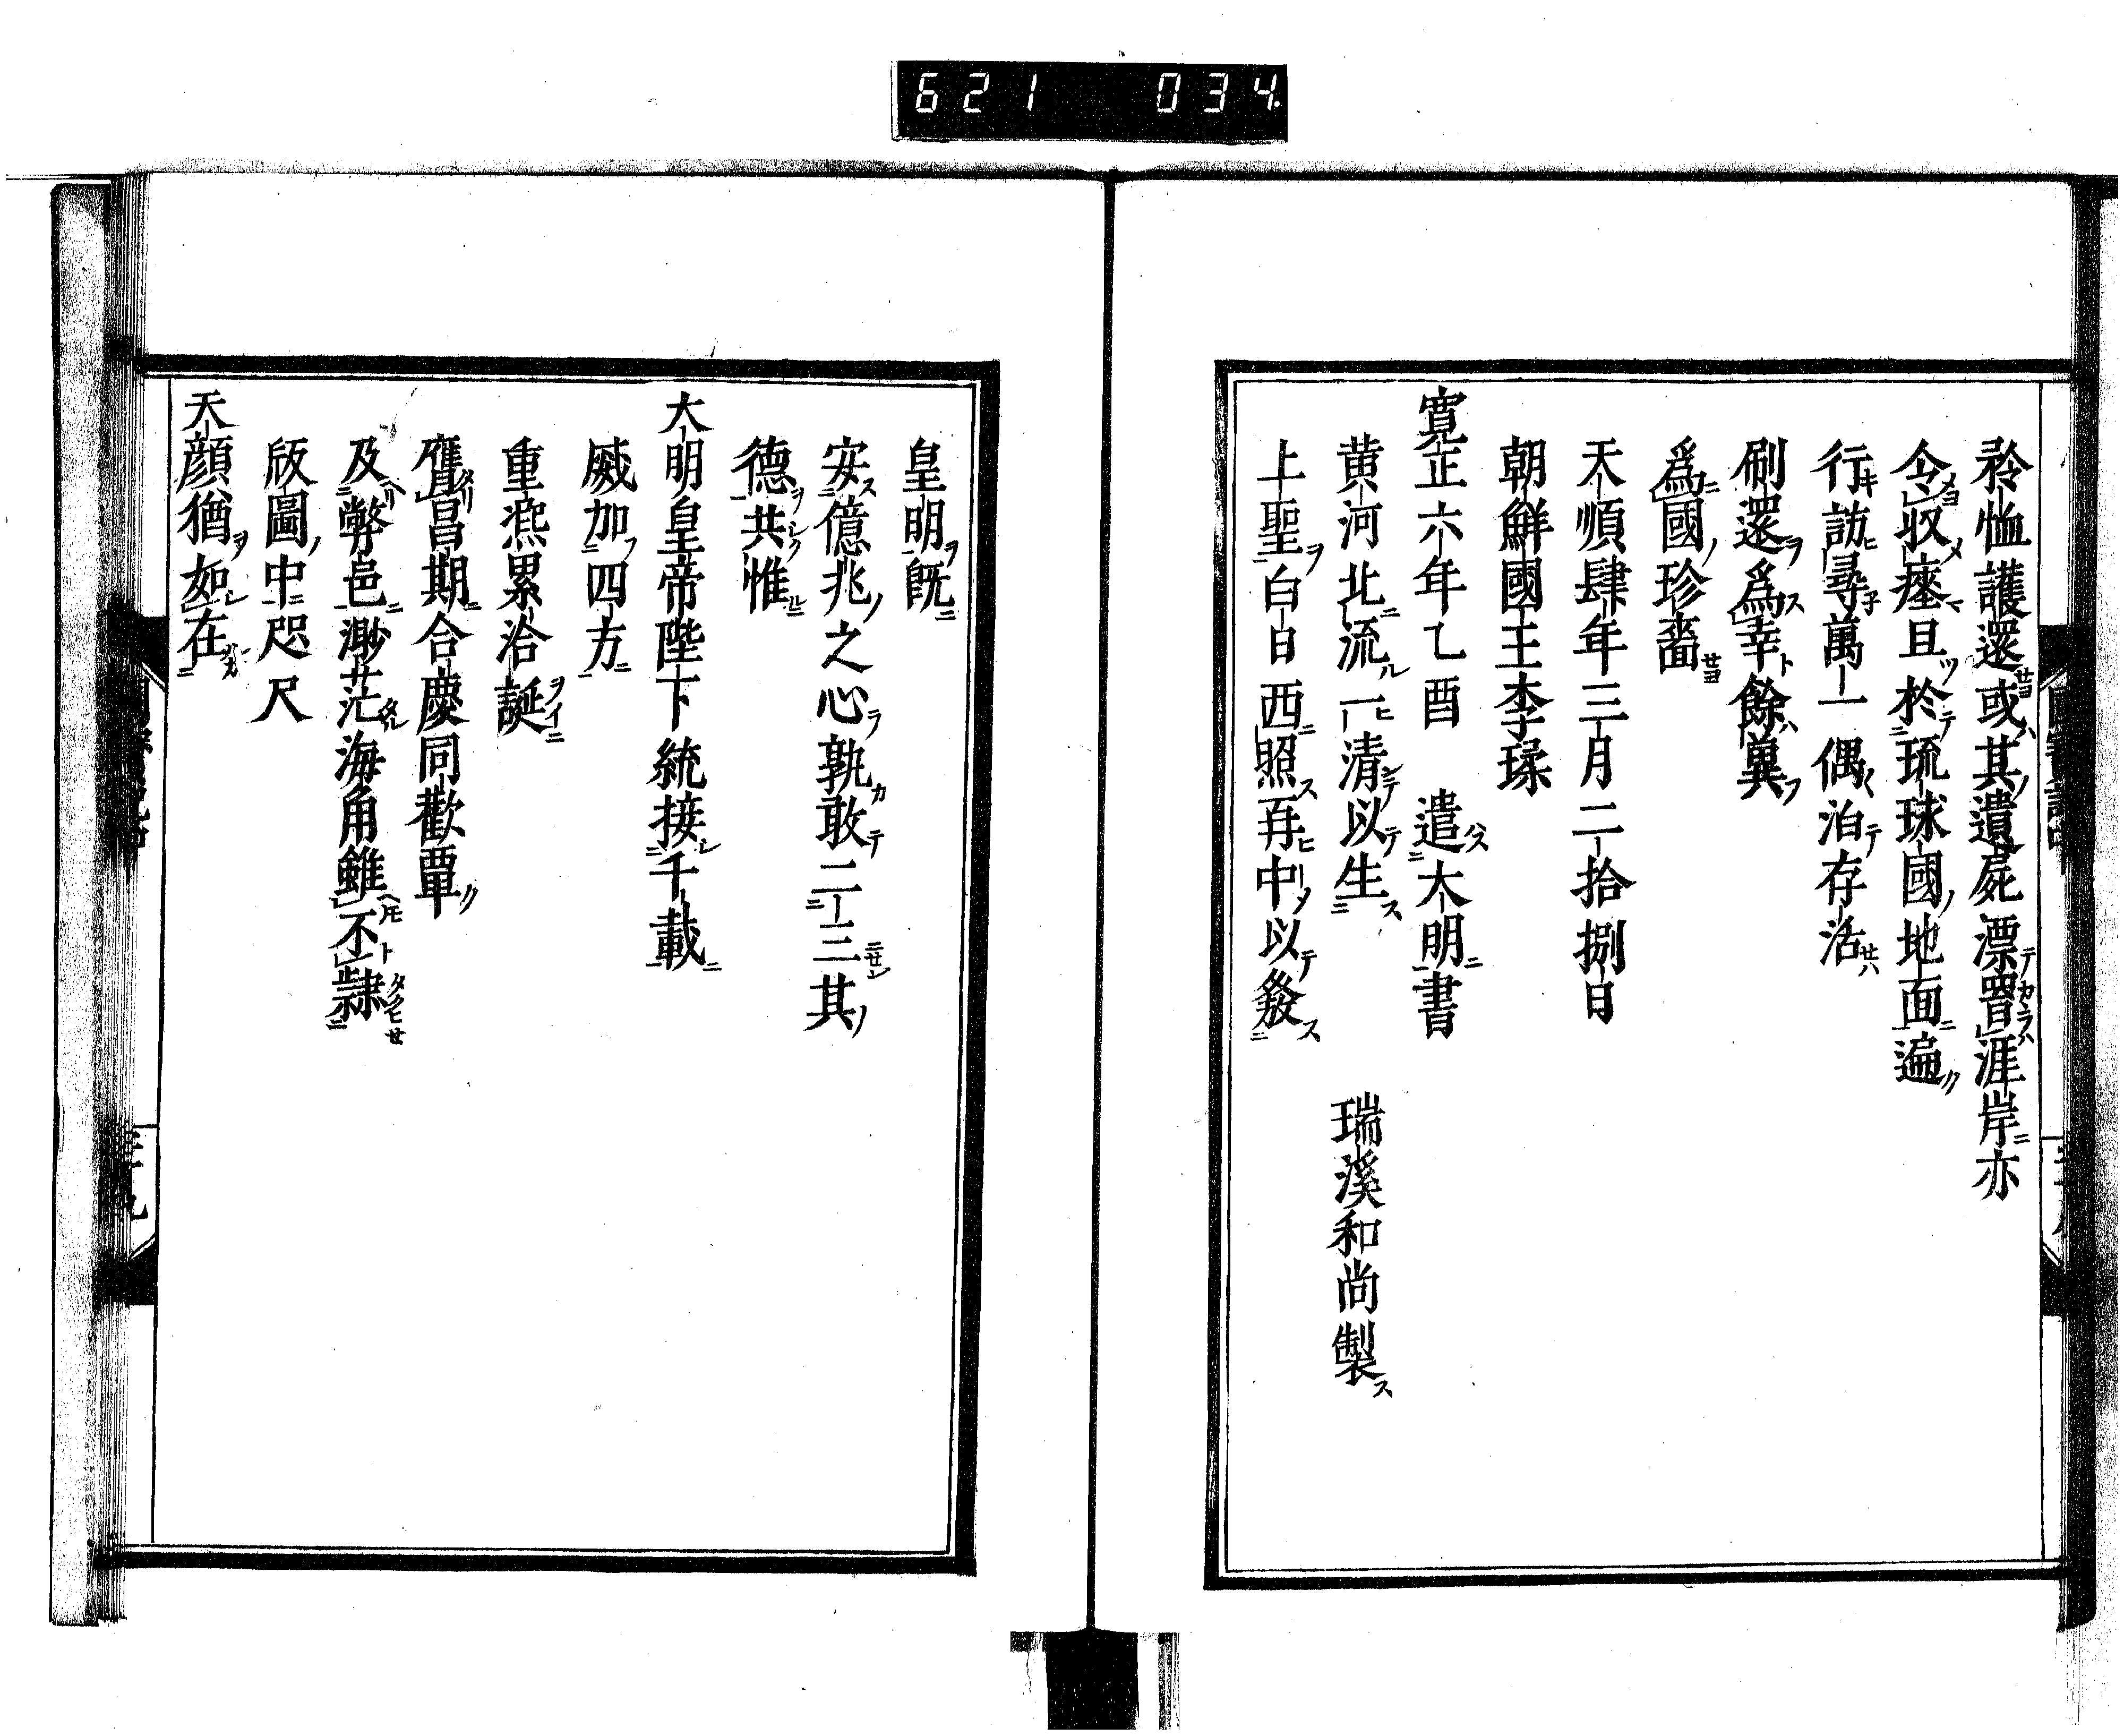 621 034
矜恤護還或其遺屍漂罥涯岸亦
令収瘞且於琉球國地面遍
行訪尋萬一偶泊存活
刷還爲幸餘冀
爲國珍嗇
天順肆年三月二拾捌日
朝鮮國王李瑈
寛正六年乙酉 遣大明書
黄河北流一清以生 瑞溪和尚製
上聖白日西照再中以發
皇明既
安億兆之心孰敢二三其
德共惟
大明皇帝陛下統接千載
威加四方
重熈累洽誕
膺昌期合慶同歡覃
及弊邑渺茫海角雖不隷
版圖中咫尺
天顔猶如在